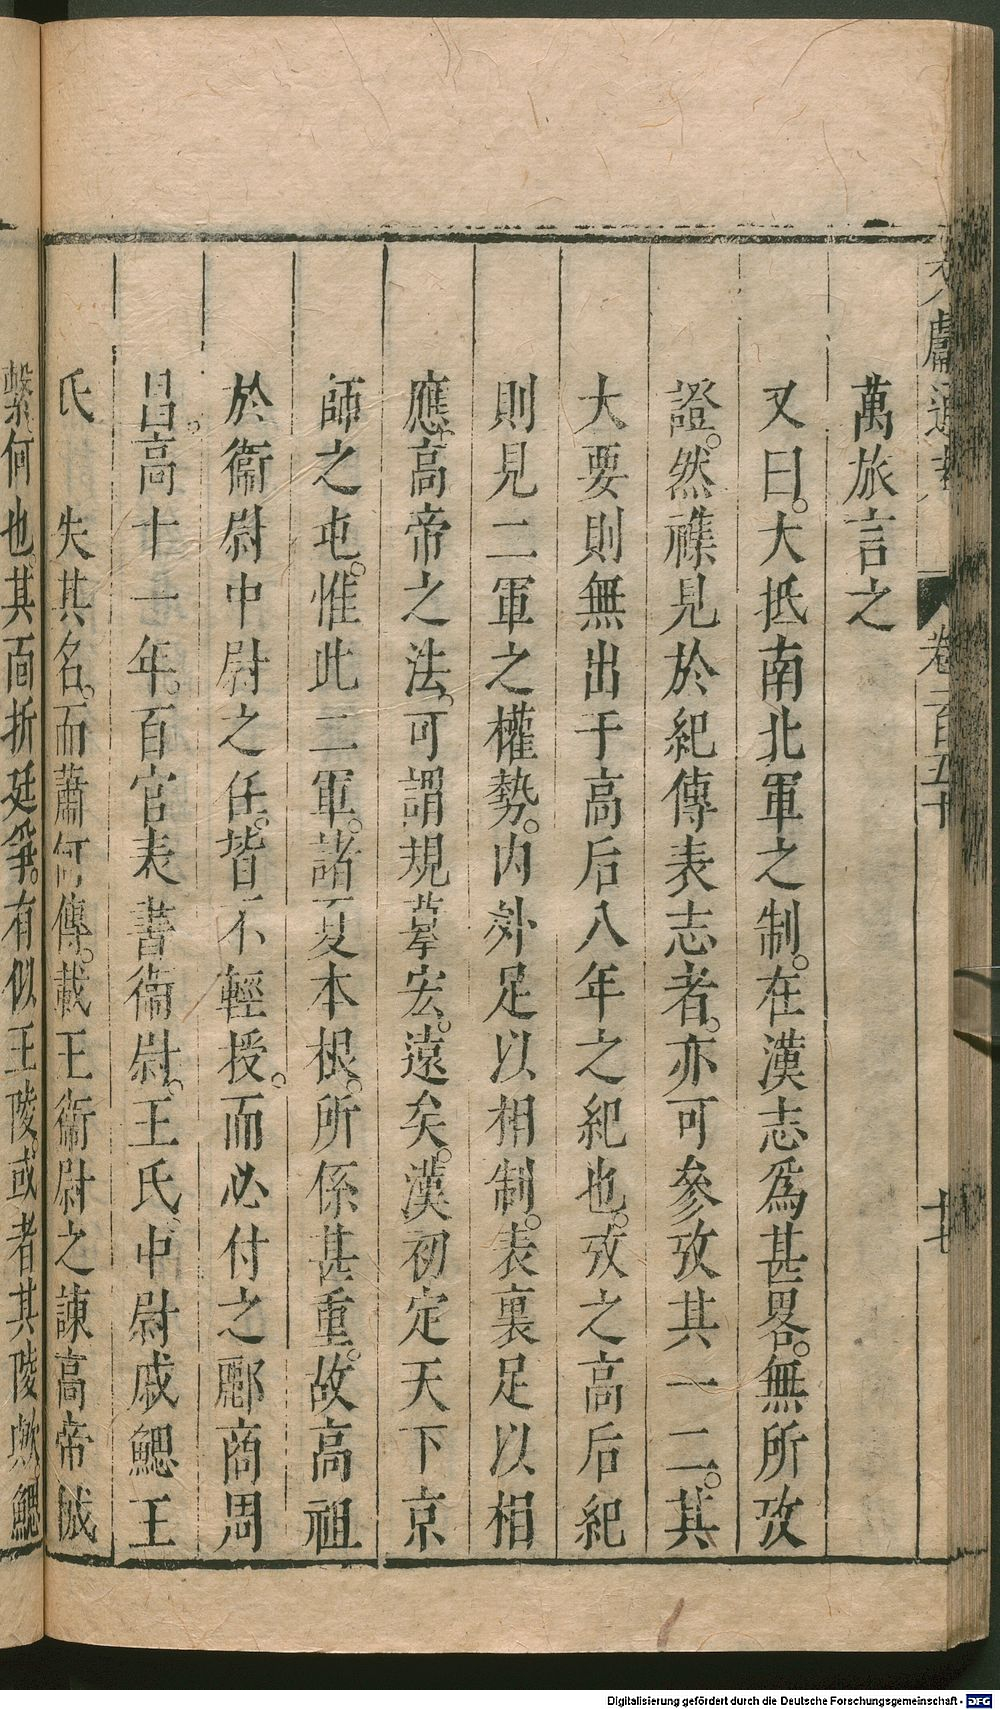 文獻通考 卷一百五十
萬旅言之
又曰。大抵南北軍之制。在漢志爲甚畧。無所攷
證。然襍見於紀傳表志者。亦可參攷其一二。其
大要則無出于高后八年之紀也。攷之高后紀
則見二軍之權勢。内外足以相制。表裏足以相
應。高帝之法。可謂規摹宏遠矣。漢初定天下京
師之屯。惟此二軍。諸夏本根。所係甚重。故高祖
於衞尉中尉之任。皆不輕授。而必付之酈商周
昌。高十一年。百官表書衞尉。王氏中尉戚鰓王
氏 失其名。而蕭何傳。載王衞尉之諫高帝械
繫何也。其面折廷爭。有似王陵。或者其陵歟鰓
Digitalisierung gefördert durch die Deutsche Forschungsgemeinschaft - DFG